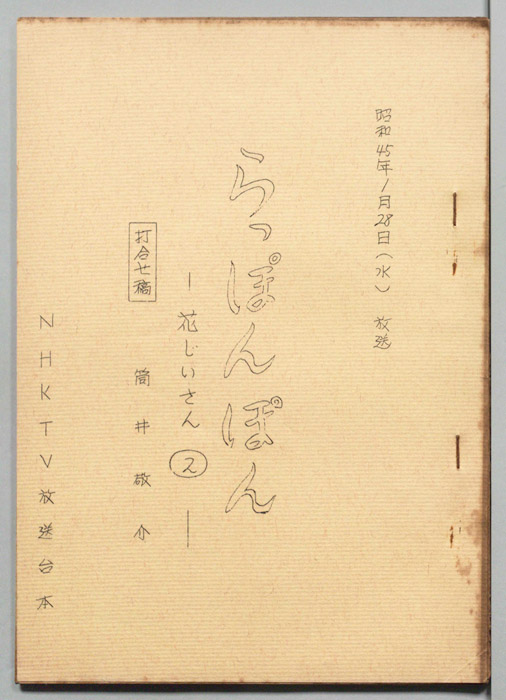 昭和45年1月28日(水) 放送
らっぽんぽん
―花じいさん ②―
打合せ稿
筒井敬介
NHKTV放送台本